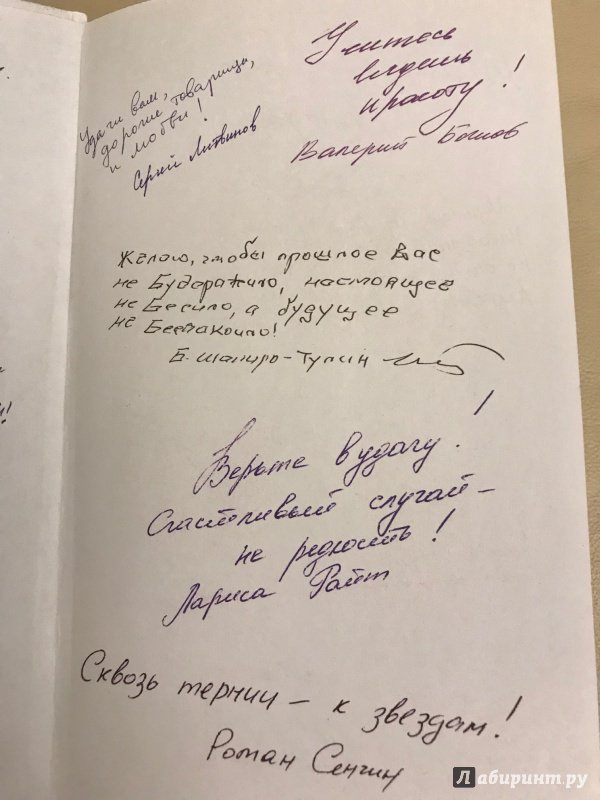 Удачи вам,
дорогие товарищи,
и любви!
Сергей Литвинов
Учитесь
видеть
красоту!
Валерий Бочков
Желаю, чтобы прошлое Вас
не Будоражило, настоящее
не Бесило, а будущее
не Беспокоило!
Б. Шапиро-Тулин
Верьте в удачу!
Счастливый случай –
не редкость!
Лариса Райт
Сквозь тернии – к звездам!
Роман Сенчин
Лабиринт.ру